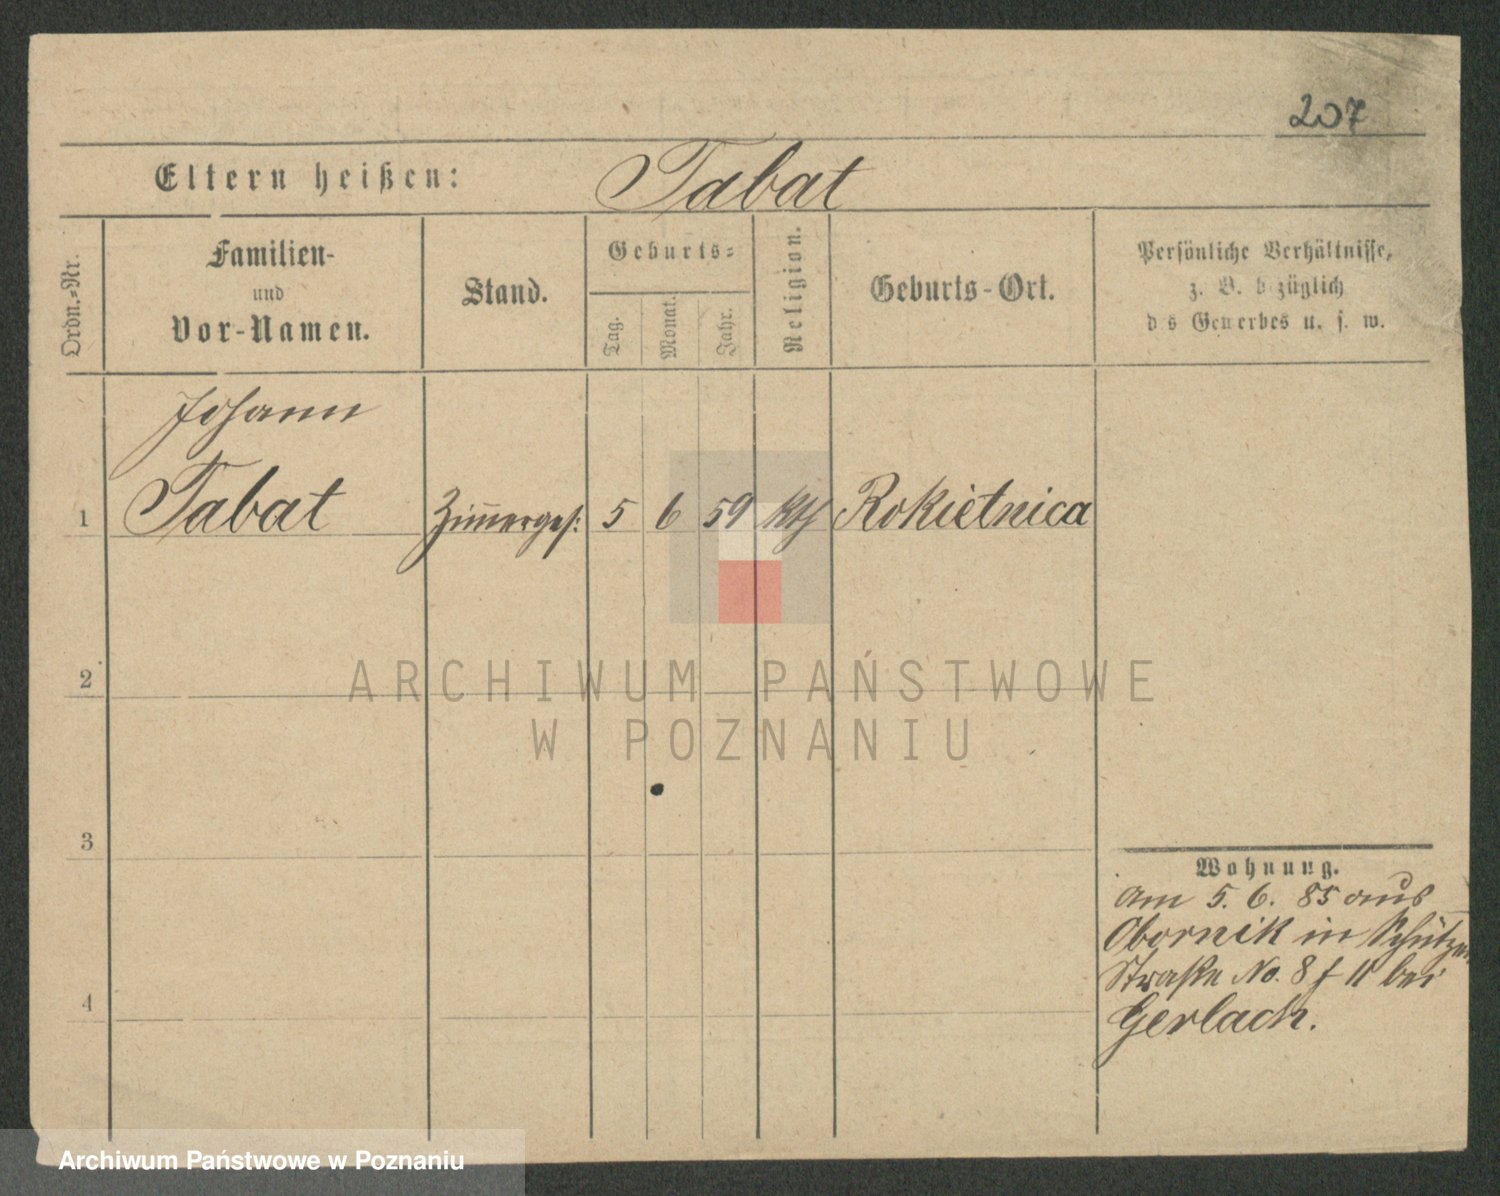 207
Eltern heißen: Tabat
Ordn.-Nr.
Familien-
und
Vor-Namen.
Stand.
Geburts-
Tag.
Monat.
Jahr.
Religion.
Geburts-Ort.
Persönliche Verhältnisse,
z. B. bezüglich
des Gewerbes u. s. w.
Johann
1 Tabat Zim̄erges: 5 6 59 kth Rokietnica
2
3
4
Wohnung.
am 5. 6. 85 aus
Obornik in Schützen
Straße No. 8 f II bei
Gerlach.
ARCHIWUM PAŃSTWOWE
W POZNANIU
Archiwum Państwowe w Poznaniu